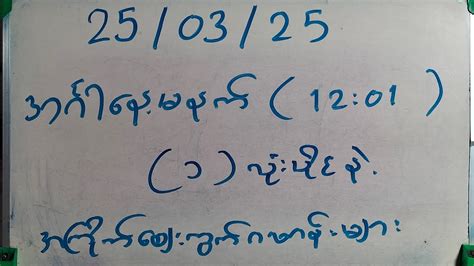 25/03/25
အင်္ဂါနေ့မနက် (12:01)
(၁) လုံးပိုင်နဲ့
အကြိုက်ဈေးကွက်ဂဏန်းများ